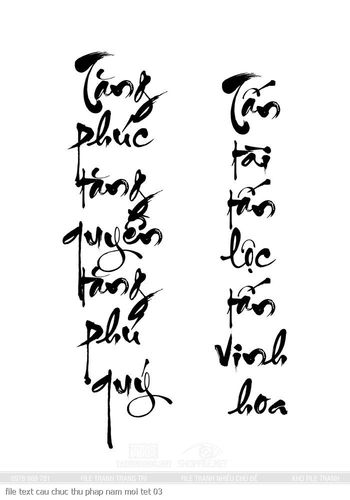 Tăng
phúc
tăng
quyền
tăng
phú
quý
Tấn
tài
tấn
lộc
tấn
vinh
hoa
0978 988 781 FILE TRANH TRANG TRÍ FILE TRANH NHIỀU CHỦ ĐỀ KHO FILE TRANH
file text cau chuc thu phap nam moi tet 03